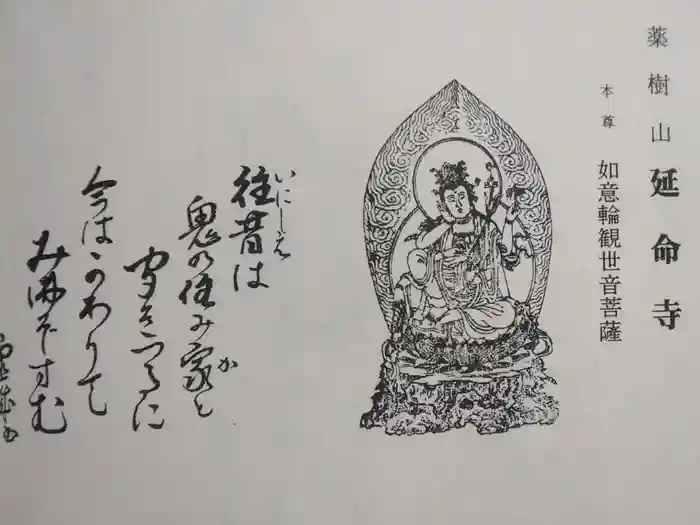 薬樹山延命寺
本尊 如意輪観世音菩薩
いにしえ
往昔は
か
鬼の住み家と
聞きつるに
今はかわりて
み佛ぞすむ